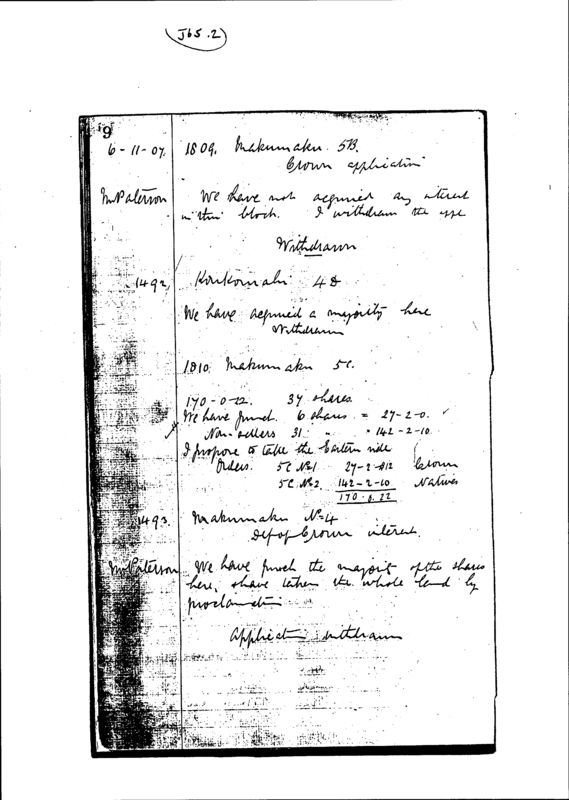 J65.2
9
6-11-07. 1809. Makumaku 5B.
Crown application
Mr Paterson We have not acquired any interest
in this block. I withdraw the
Withdrawn
1492, 4
We have acquired a majority here
Withdrawn
1810. Makumaku 5C.
170-0-22. 37 shares.
We have purch. 6 shares = 27-2-0.
Non-sellers 31 " = 142-2-10
I propose to take the Eastern side
Orders. 5C No1 27-2- Crown
5C No2 142-2-10 Natives
170.0.22
1493. Makumaku No 4
Def of Crown interest.
Mr Paterson We have purch the majority of the shares
here, & have taken the whole land by
proclamation
Application withdrawn